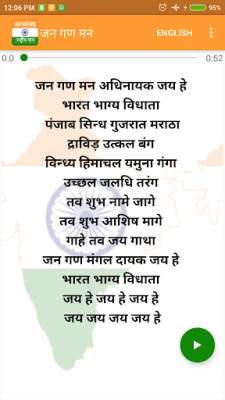 12:06 PM 95%
जन गण मन ENGLISH
0.0 0:52
जन गण मन अधिनायक जय हे
भारत भाग्य विधाता
पंजाब सिन्ध गुजरात मराठा
द्राविड़ उत्कल बंग
विन्ध्य हिमाचल यमुना गंगा
उच्छल जलधि तरंग
तव शुभ नामे जागे
तव शुभ आशिष मागे
गाहे तव जय गाथा
जन गण मंगल दायक जय हे
भारत भाग्य विधाता
जय हे जय हे जय हे
जय जय जय जय हे